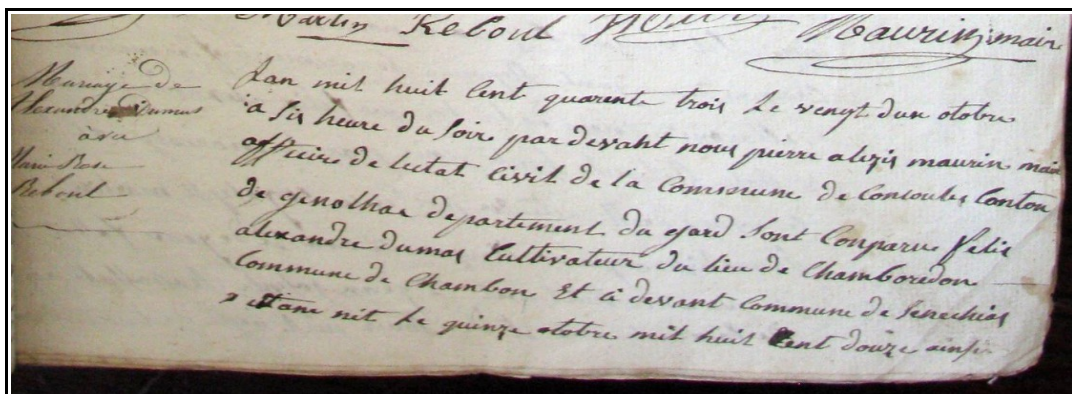 Martin Reboul Maurin, maire
Mariage de
Alexandre Dumas
avec
Marie Rose
Reboul
Lan mil huit Cent quarente trois Le vengt dun otobre
a Six heure du Soir par devant nous pierre alezis maurin maire
officire de letat Civil de la Commune de Concoules Canton
de genolhac departement du gard Sont Conparu felis
alexandre Dumas Cultivateur du lieu de Chamboredon
Commune de Chambon Et Ci devant Commune de Senechas
netant nit Le quinze otobre mil huit Cent douze ainsi